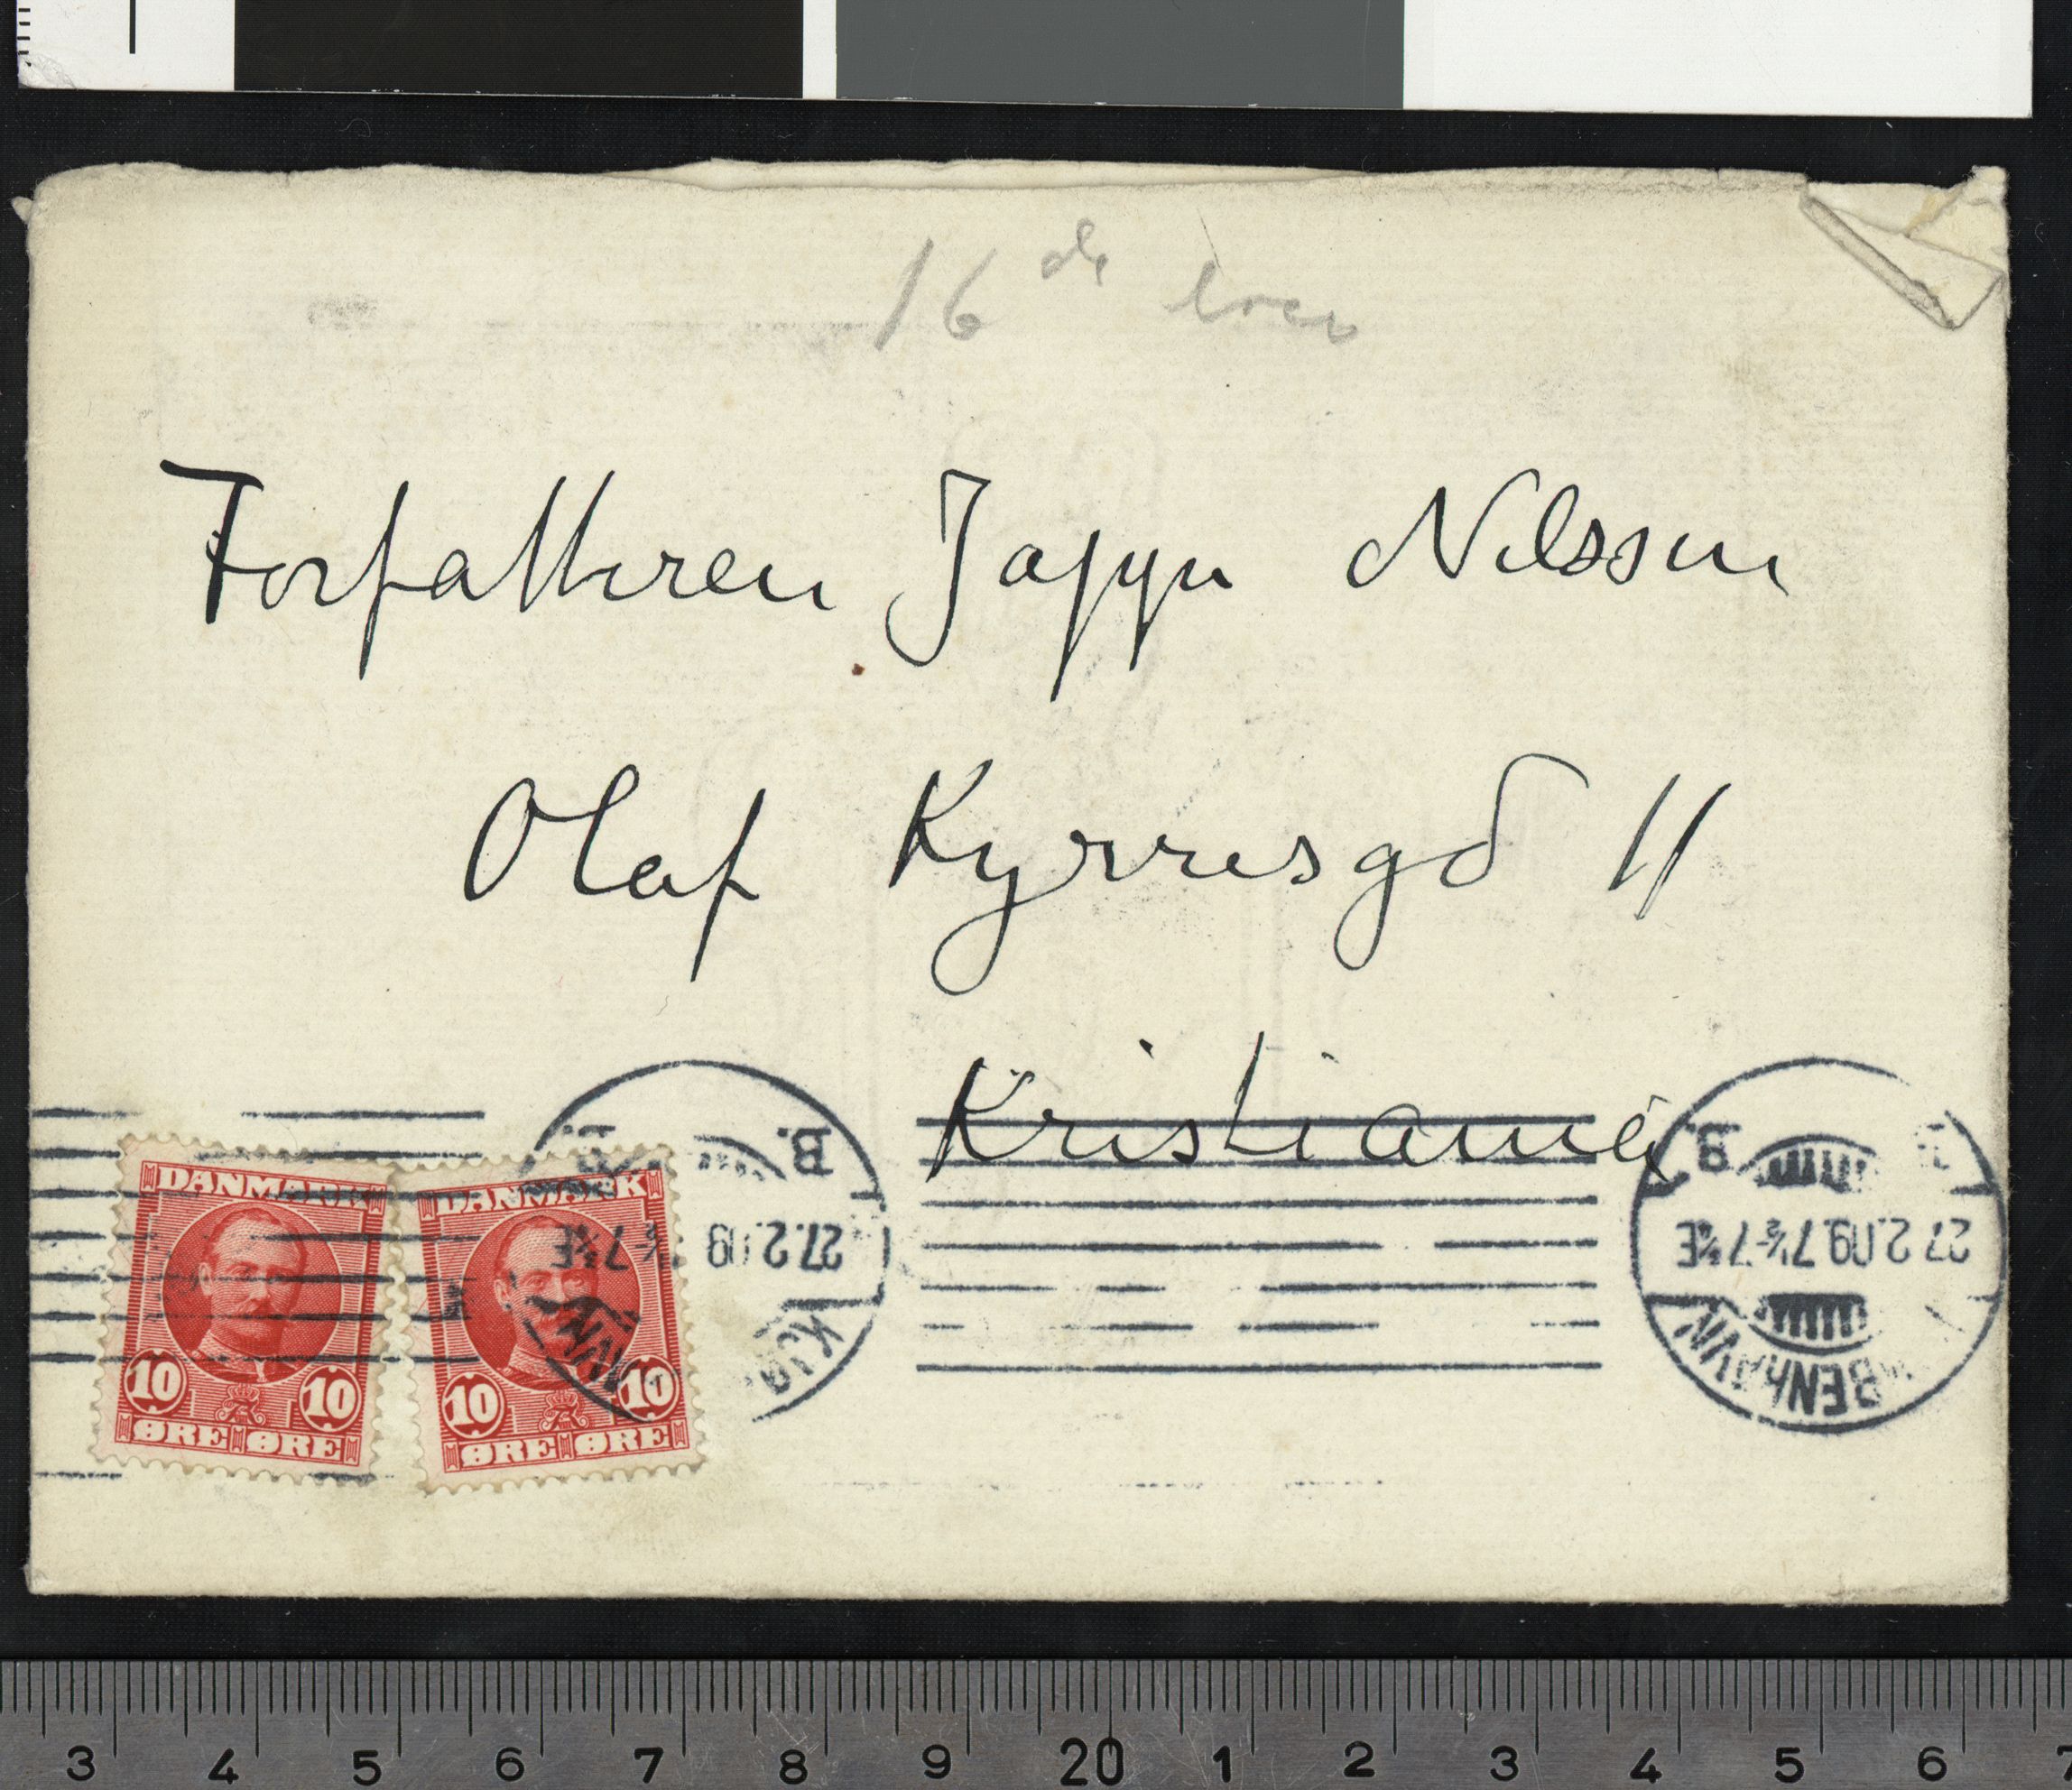 16de brev
Forfatteren Jappe Nilssen
Olaf Kyrresgd 11
Kristiania
DANMARK
10 10
ØRE ØRE
DANMARK
10 10
ØRE ØRE
B.
27.2.09
B.
27.2.09 7½-7¾E
3 4 5 6 7 8 9 20 1 2 3 4 5 6 7